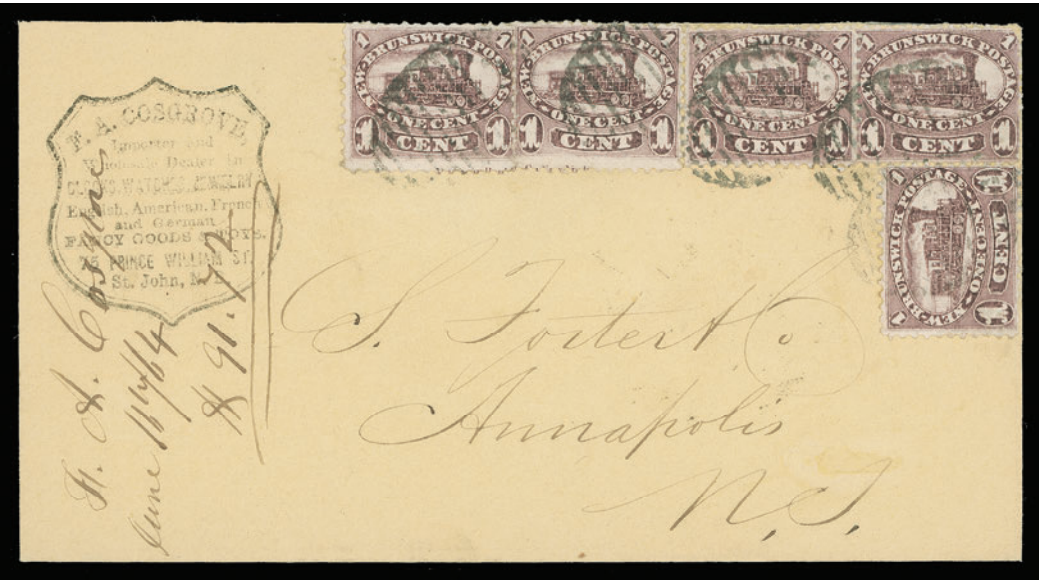 F. A. COSGROVE,
Importer and
Wholesale Dealer in
CLOCKS, WATCHES, JEWELRY
English, American, French
and German
FANCY GOODS & TOYS.
75 PRINCE WILLIAM ST.
St. John, N. B.
F. A. Cosgrove
June 18/64
$91.72
1 NEW-BRUNSWICK POSTAGE. 1
ONE CENT
1 CENT 1
1 NEW-BRUNSWICK POSTAGE. 1
ONE CENT
1 CENT 1
1 NEW-BRUNSWICK POSTAGE. 1
ONE CENT
1 CENT 1
1 NEW-BRUNSWICK POSTAGE. 1
ONE CENT
1 CENT 1
1 NEW-BRUNSWICK POSTAGE. 1
ONE CENT
1 CENT 1
S. Foster & Co
Annapolis
N.S.